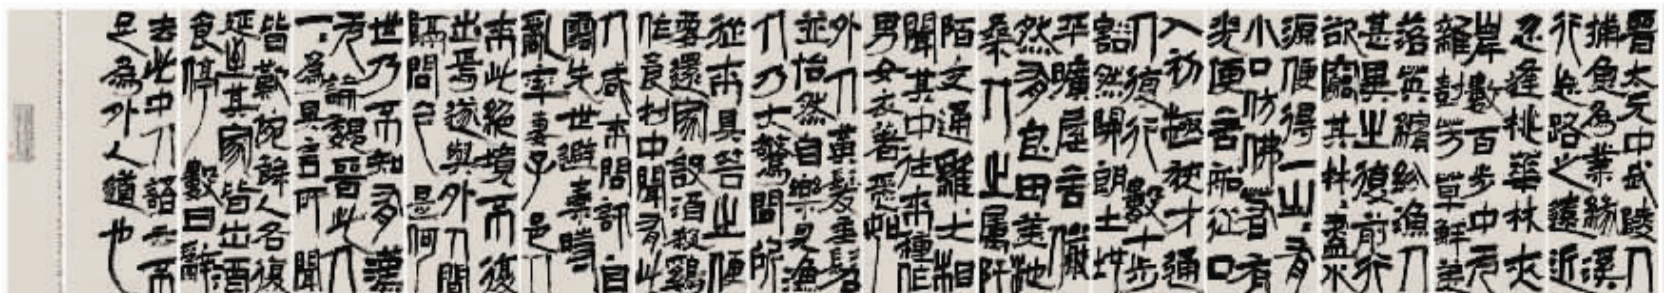 晉太元中武陵人
捕魚為業緣溪
行忘路之遠近
忽逢桃華林夾
岸數百步中无
雜樹芳草鮮美
落英繽紛漁人
甚異之復前行
欲窮其林林盡水
源便得一山山有
小口仿佛若有
光便舍船從口
入初極狹才通
人復行數十步
豁然開朗土地
平曠屋舍儼
然有良田美池
桑竹之屬阡
陌交通雞犬相
聞其中往來種作
男女衣著悉如
外人黃髮垂髫
並怡然自樂見漁
人乃大驚問所
從來具答之便
要還家設酒殺雞
作食村中聞有此
人咸來問訊自
云先世避秦時
亂率妻子邑人
來此絕境不復
出焉遂與外人間
隔問今是何
世乃不知有漢
无論魏晉此人
一一為具言所聞
皆歎惋餘人各復
延至其家皆出酒
食停數日辭
去此中人語云不
足為外人道也